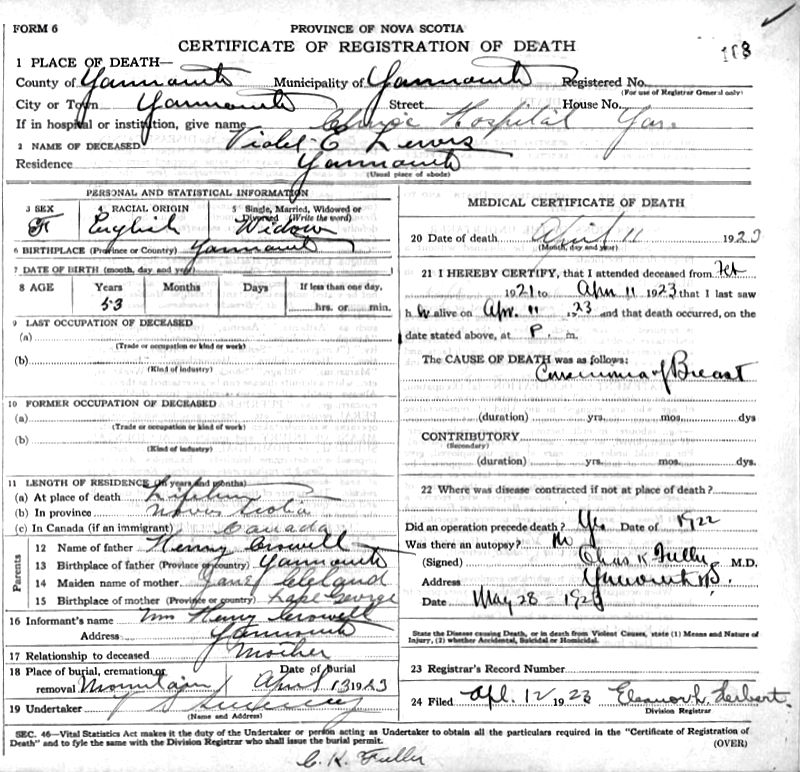 FORM 6 PROVINCE OF NOVA SCOTIA
CERTIFICATE OF REGISTRATION OF DEATH
1 PLACE OF DEATH—
County of Yarmouth Municipality of Yarmouth Registered No.
(For use of Registrar General only)
City or Town Yarmouth Street House No.
If in hospital or institution, give name Hospital Yar.
2 NAME OF DECEASED Violet E Lewis
Residence Yarmouth
(Usual place of abode)
PERSONAL AND STATISTICAL INFORMATION
3 SEX 4 RACIAL ORIGIN 5 Single, Married, Widowed or Divorced (Write the word)
F English Widow
6 BIRTHPLACE (Province or Country) Yarmouth
7 DATE OF BIRTH (month, day and year)
8 AGE Years Months Days If less than one day,
53 hrs. or min.
9 LAST OCCUPATION OF DECEASED
(a)
(Trade or occupation or kind of work)
(b)
(Kind of industry)
10 FORMER OCCUPATION OF DECEASED
(a)
(Trade or occupation or kind of work)
(b)
(Kind of industry)
11 LENGTH OF RESIDENCE (in years and months)
(a) At place of death Lifetime
(b) In province Nova Scotia
(c) In Canada (if an immigrant) Canada
Parents
12 Name of father Henry Crowell
13 Birthplace of father (Province or country) Yarmouth
14 Maiden name of mother Jane Cleland
15 Birthplace of mother (Province or country) Lake George
16 Informant's name Mrs Henry Crowell
Address Yarmouth
17 Relationship to deceased Mother
18 Place of burial, cremation or removal Mountain Date of burial April 13 1923
19 Undertaker
(Name and Address)
MEDICAL CERTIFICATE OF DEATH
20 Date of death April 11 1923
(Month, day and year)
21 I HEREBY CERTIFY, that I attended deceased from Feb
1921 to Apr 11 1923 that I last saw
h alive on Apr. 11 1923 and that death occurred, on
date stated above, at P. m.
The CAUSE OF DEATH was as follows:
Carcinoma of Breast
(duration) yrs. mos. dys
CONTRIBUTORY
(Secondary)
(duration) yrs. mos. dys.
22 Where was disease contracted if not at place of death?
Did an operation precede death? Yes Date of 1922
Was there an autopsy? No
(Signed) Chas K Fuller M.D.
Address Yarmouth NS.
Date May 28 – 1923
State the Disease causing Death, or in death from Violent Causes, state (1) Means and Nature of
Injury, (2) whether Accidental, Suicidal or Homicidal.
23 Registrar's Record Number
24 Filed Apl. 12 1923 Eleanor L. Herbert.
Division Registrar
SEC. 46—Vital Statistics Act makes it the duty of the Undertaker or person acting as Undertaker to obtain all the particulars required in the "Certificate of Registration of
Death" and to fyle the same with the Division Registrar who shall issue the burial permit. (OVER)
C. K. Fuller